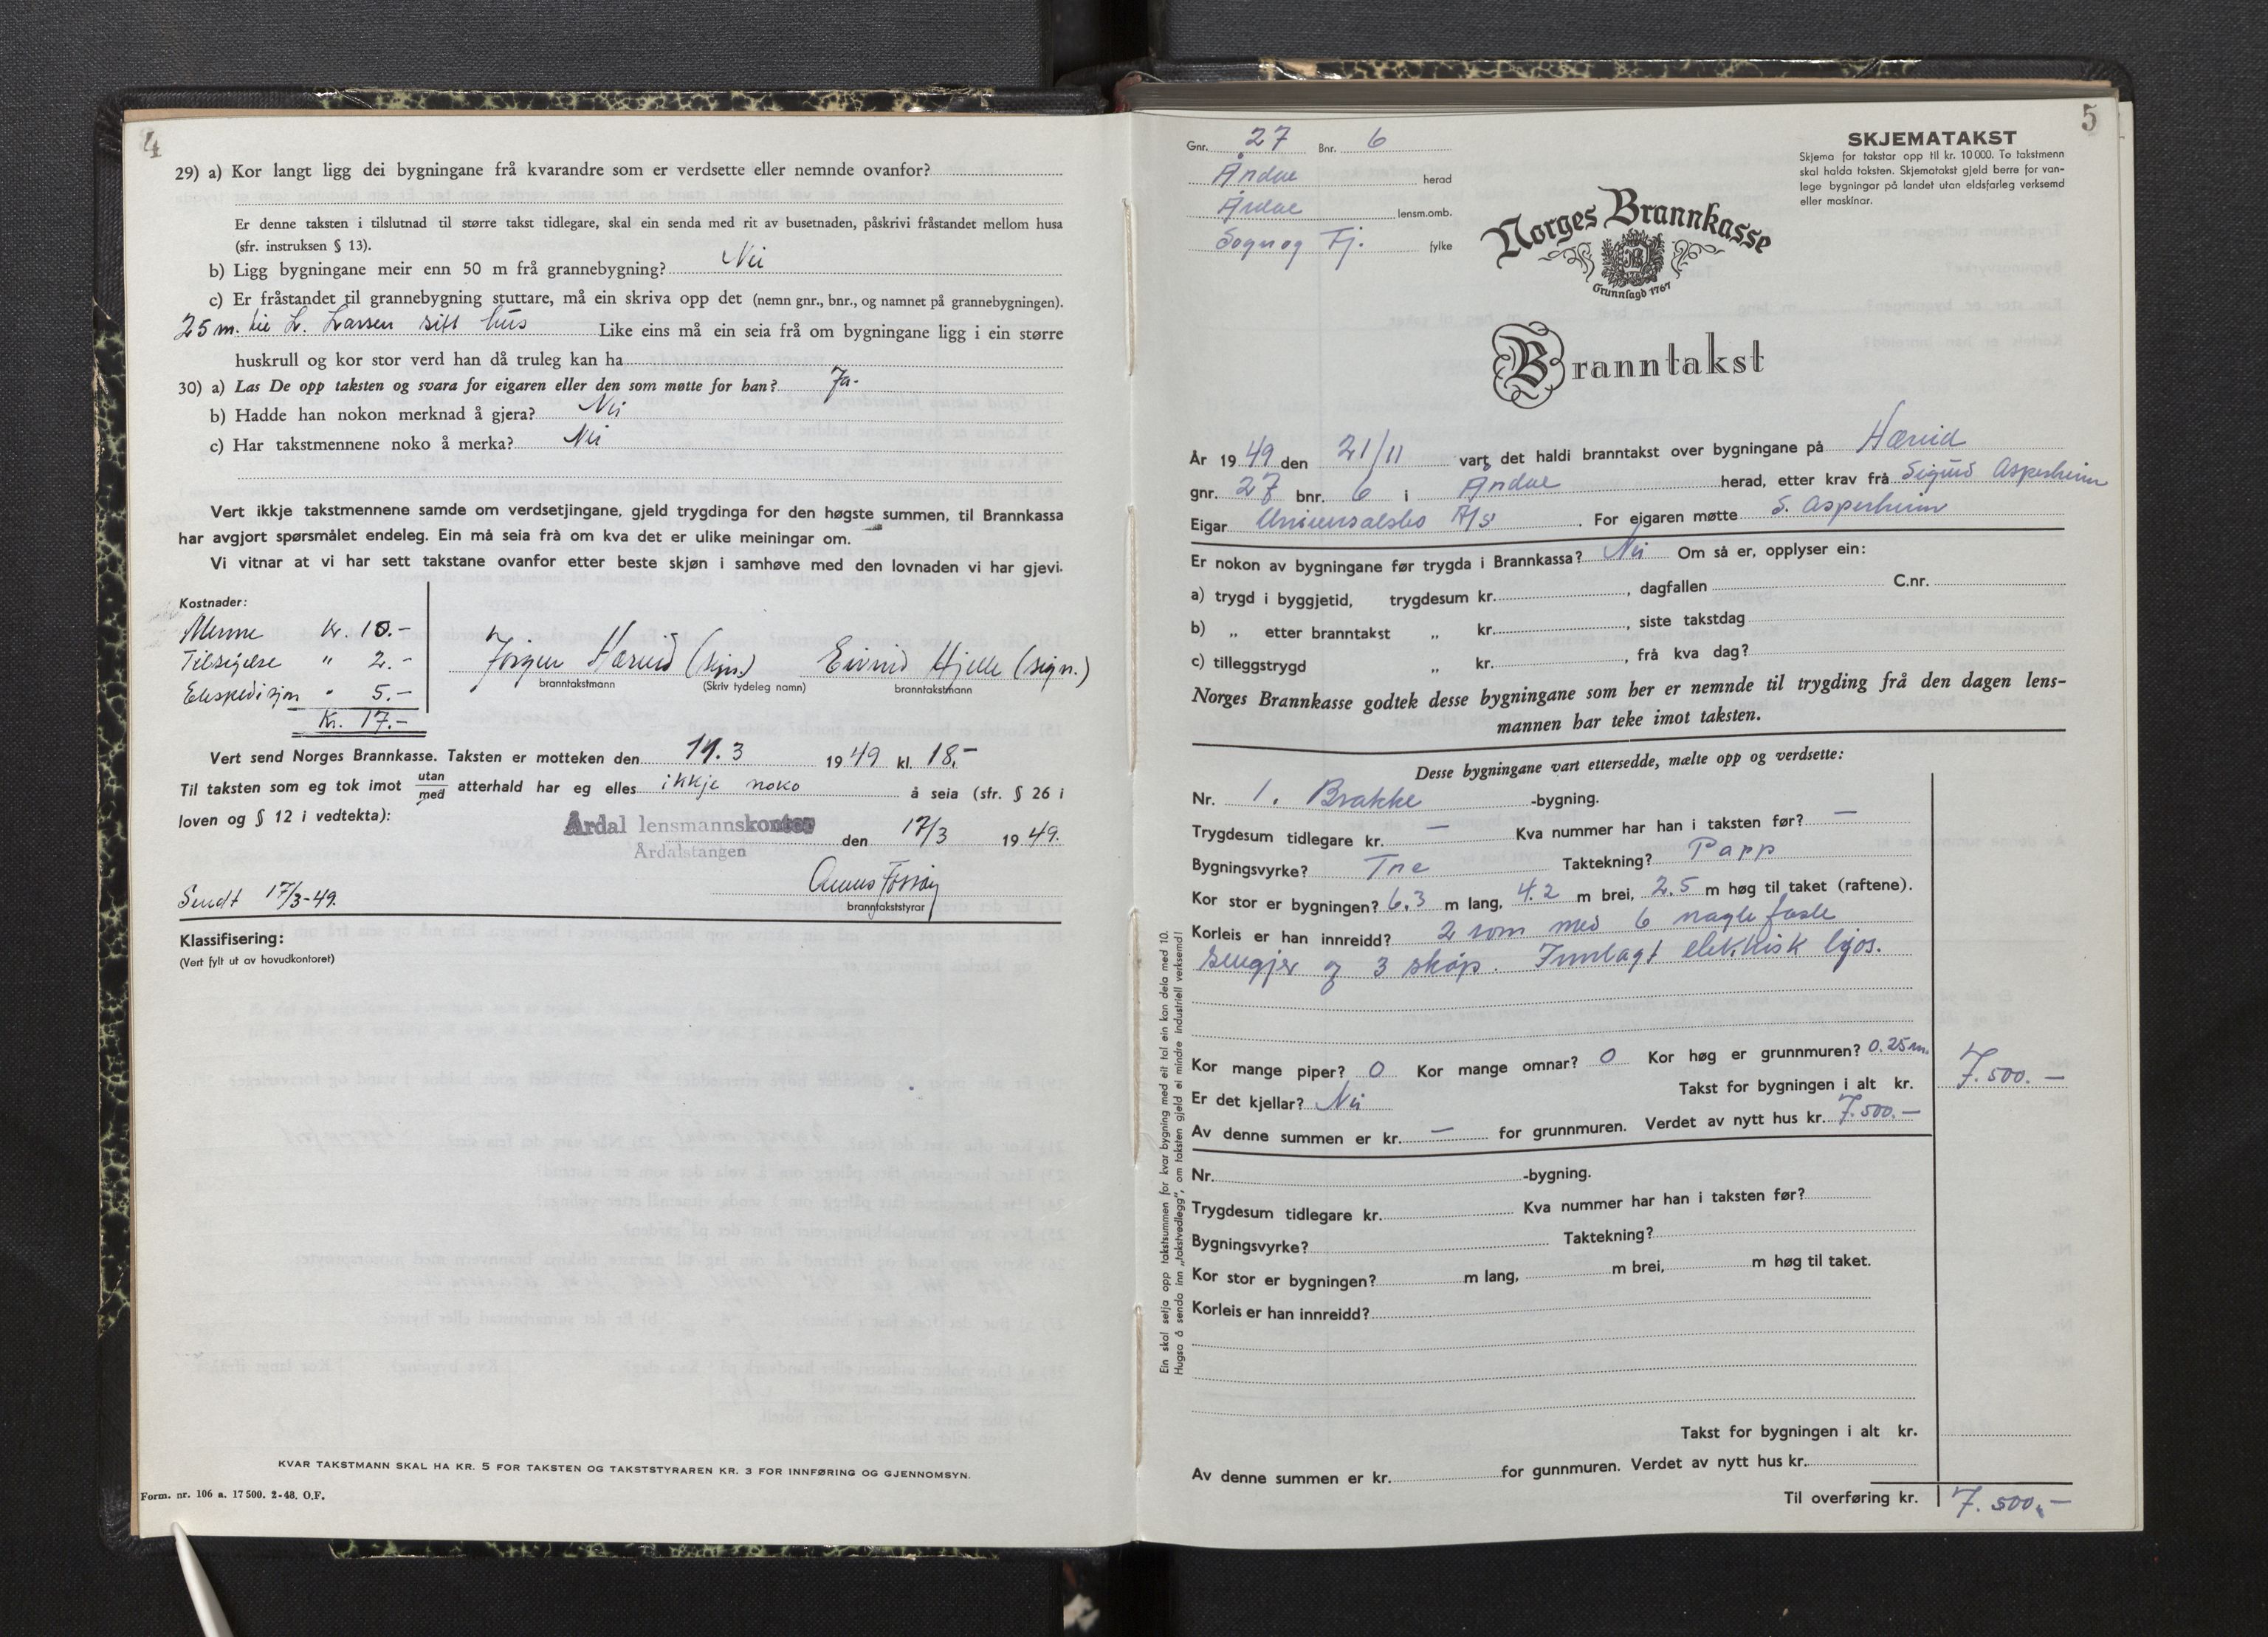 4
29) a) Kor langt ligg dei bygningane frå kvarandre som er verdsette eller nemnde ovanfor?
Er denne taksten i tilslutnad til større takst tidlegare, skal ein senda med rit av busetnaden, påskrivi fråstandet mellom husa
(sfr. instruksen § 13).
b) Ligg bygningane meir enn 50 m frå grannebygning? Nei
c) Er fråstandet til grannebygning stuttare, må ein skriva opp det (nemn gnr., bnr., og namnet på grannebygningen).
25 m. til L. Larsen sitt hus Like eins må ein seia frå om bygningane ligg i ein større
huskrull og kor stor verd han då truleg kan ha
30) a) Las De opp taksten og svara for eigaren eller den som møtte for han? Ja.
b) Hadde han nokon merknad å gjera? Nei
c) Har takstmennene noko å merka? Nei
Vert ikkje takstmennene samde om verdsetjingane, gjeld trygdinga for den høgste summen, til Brannkassa
har avgjort spørsmålet endeleg. Ein må seia frå om kva det er ulike meiningar om.
Vi vitnar at vi har sett takstane ovanfor etter beste skjøn i samhøve med den lovnaden vi har gjevi.
Kostnader:
Menne kr. 10.-
Tilsigelse " 2.-
Ekspedisjon " 5.-
Kr. 17.-
Jørgen Hæreid (sign.) Eivind Hjelle (sign.)
branntakstmann (Skriv tydeleg namn) branntakstmann
Vert send Norges Brannkasse. Taksten er motteken den 17.3 1949 kl. 18,-
Til taksten som eg tok imot utan/med atterhald har eg elles ikkje noko å seia (sfr. § 26 i
loven og § 12 i vedtekta):
Årdal lensmannskontor
Årdalstangen
den 17/3 1949.
Sendt 17/3-49.
branntakststyrar
Klassifisering:
(Vert fylt ut av hovudkontoret)
KVAR TAKSTMANN SKAL HA KR. 5 FOR TAKSTEN OG TAKSTSTYRAREN KR. 3 FOR INNFØRING OG GJENNOMSYN.
Form. nr. 106 a. 17 500. 2-48. O.F.
5
Gnr. 27 Bnr. 6
Årdal herad
Årdal lensm.omb.
Sogn og Fj. fylke
SKJEMATAKST
Skjema for takstar opp til kr. 10 000. To takstmenn
skal halda taksten. Skjematakst gjeld berre for van-
lege bygningar på landet utan eldsfarleg verksemd
eller maskinar.
Norges Brannkasse
Grunnlagd 1767
Branntakst
År 1949 den 21/11 vart det haldi branntakst over bygningane på Hæreid
gnr. 27 bnr. 6 i Årdal herad, etter krav frå Sigurd Asperheim
Eigar Universalsbo A/S. For eigaren møtte S. Asperheim
Er nokon av bygningane før trygda i Brannkassa? Nei Om så er, opplyser ein:
a) trygd i byggjetid, trygdesum kr. , dagfallen C.nr.
b) „ etter branntakst „ kr. , siste takstdag
c) tilleggstrygd „ kr. , frå kva dag?
Norges Brannkasse godtek desse bygningane som her er nemnde til trygding frå den dagen lens-
mannen har teke imot taksten.
Desse bygningane vart ettersedde, mælte opp og verdsette:
Nr. 1. Brakke -bygning.
Trygdesum tidlegare kr. — Kva nummer har han i taksten før? —
Bygningsvyrke? Tre Taktekning? Papp
Kor stor er bygningen? 6.3 m lang, 4.2 m brei, 2.5 m høg til taket (raftene).
Korleis er han innreidd? 2 rom med 6 nagle faste
sengjer og 3 skåp. Innlagt elektrisk ljos.
Kor mange piper? 0 Kor mange omnar? 0 Kor høg er grunnmuren? 0.25 m.
Er det kjellar? Nei Takst for bygningen i alt kr. 7.500.—
Av denne summen er kr. — for grunnmuren. Verdet av nytt hus kr. 7.500.—
Nr. -bygning.
Trygdesum tidlegare kr. Kva nummer har han i taksten før?
Bygningsvyrke? Taktekning?
Kor stor er bygningen? m lang, m brei, m høg til taket.
Korleis er han innreidd?
Takst for bygningen i alt kr.
Av denne summen er kr. for gunnmuren. Verdet av nytt hus kr.
Til overføring kr. 7.500.—
Ein skal setja opp takstsummen for kvar bygning med eit tal ein kan dela med 10.
Hugsa å senda inn „takstvedlegg", om taksten gjeld ei mindre industriell verksemd!